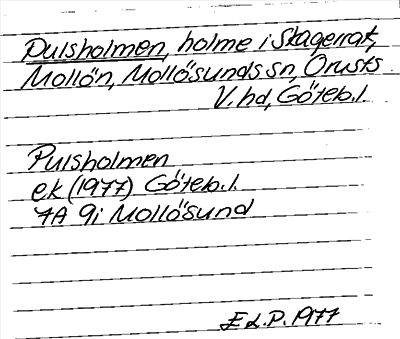 Pulsholmen, holme i Skagerrak,
Mollön, Mollösunds sn, Orusts
V. hd, Göteb. l.
Pulsholmen
ek (1977) Göteb. l.
7A 9i Mollösund
E L.P. 1977